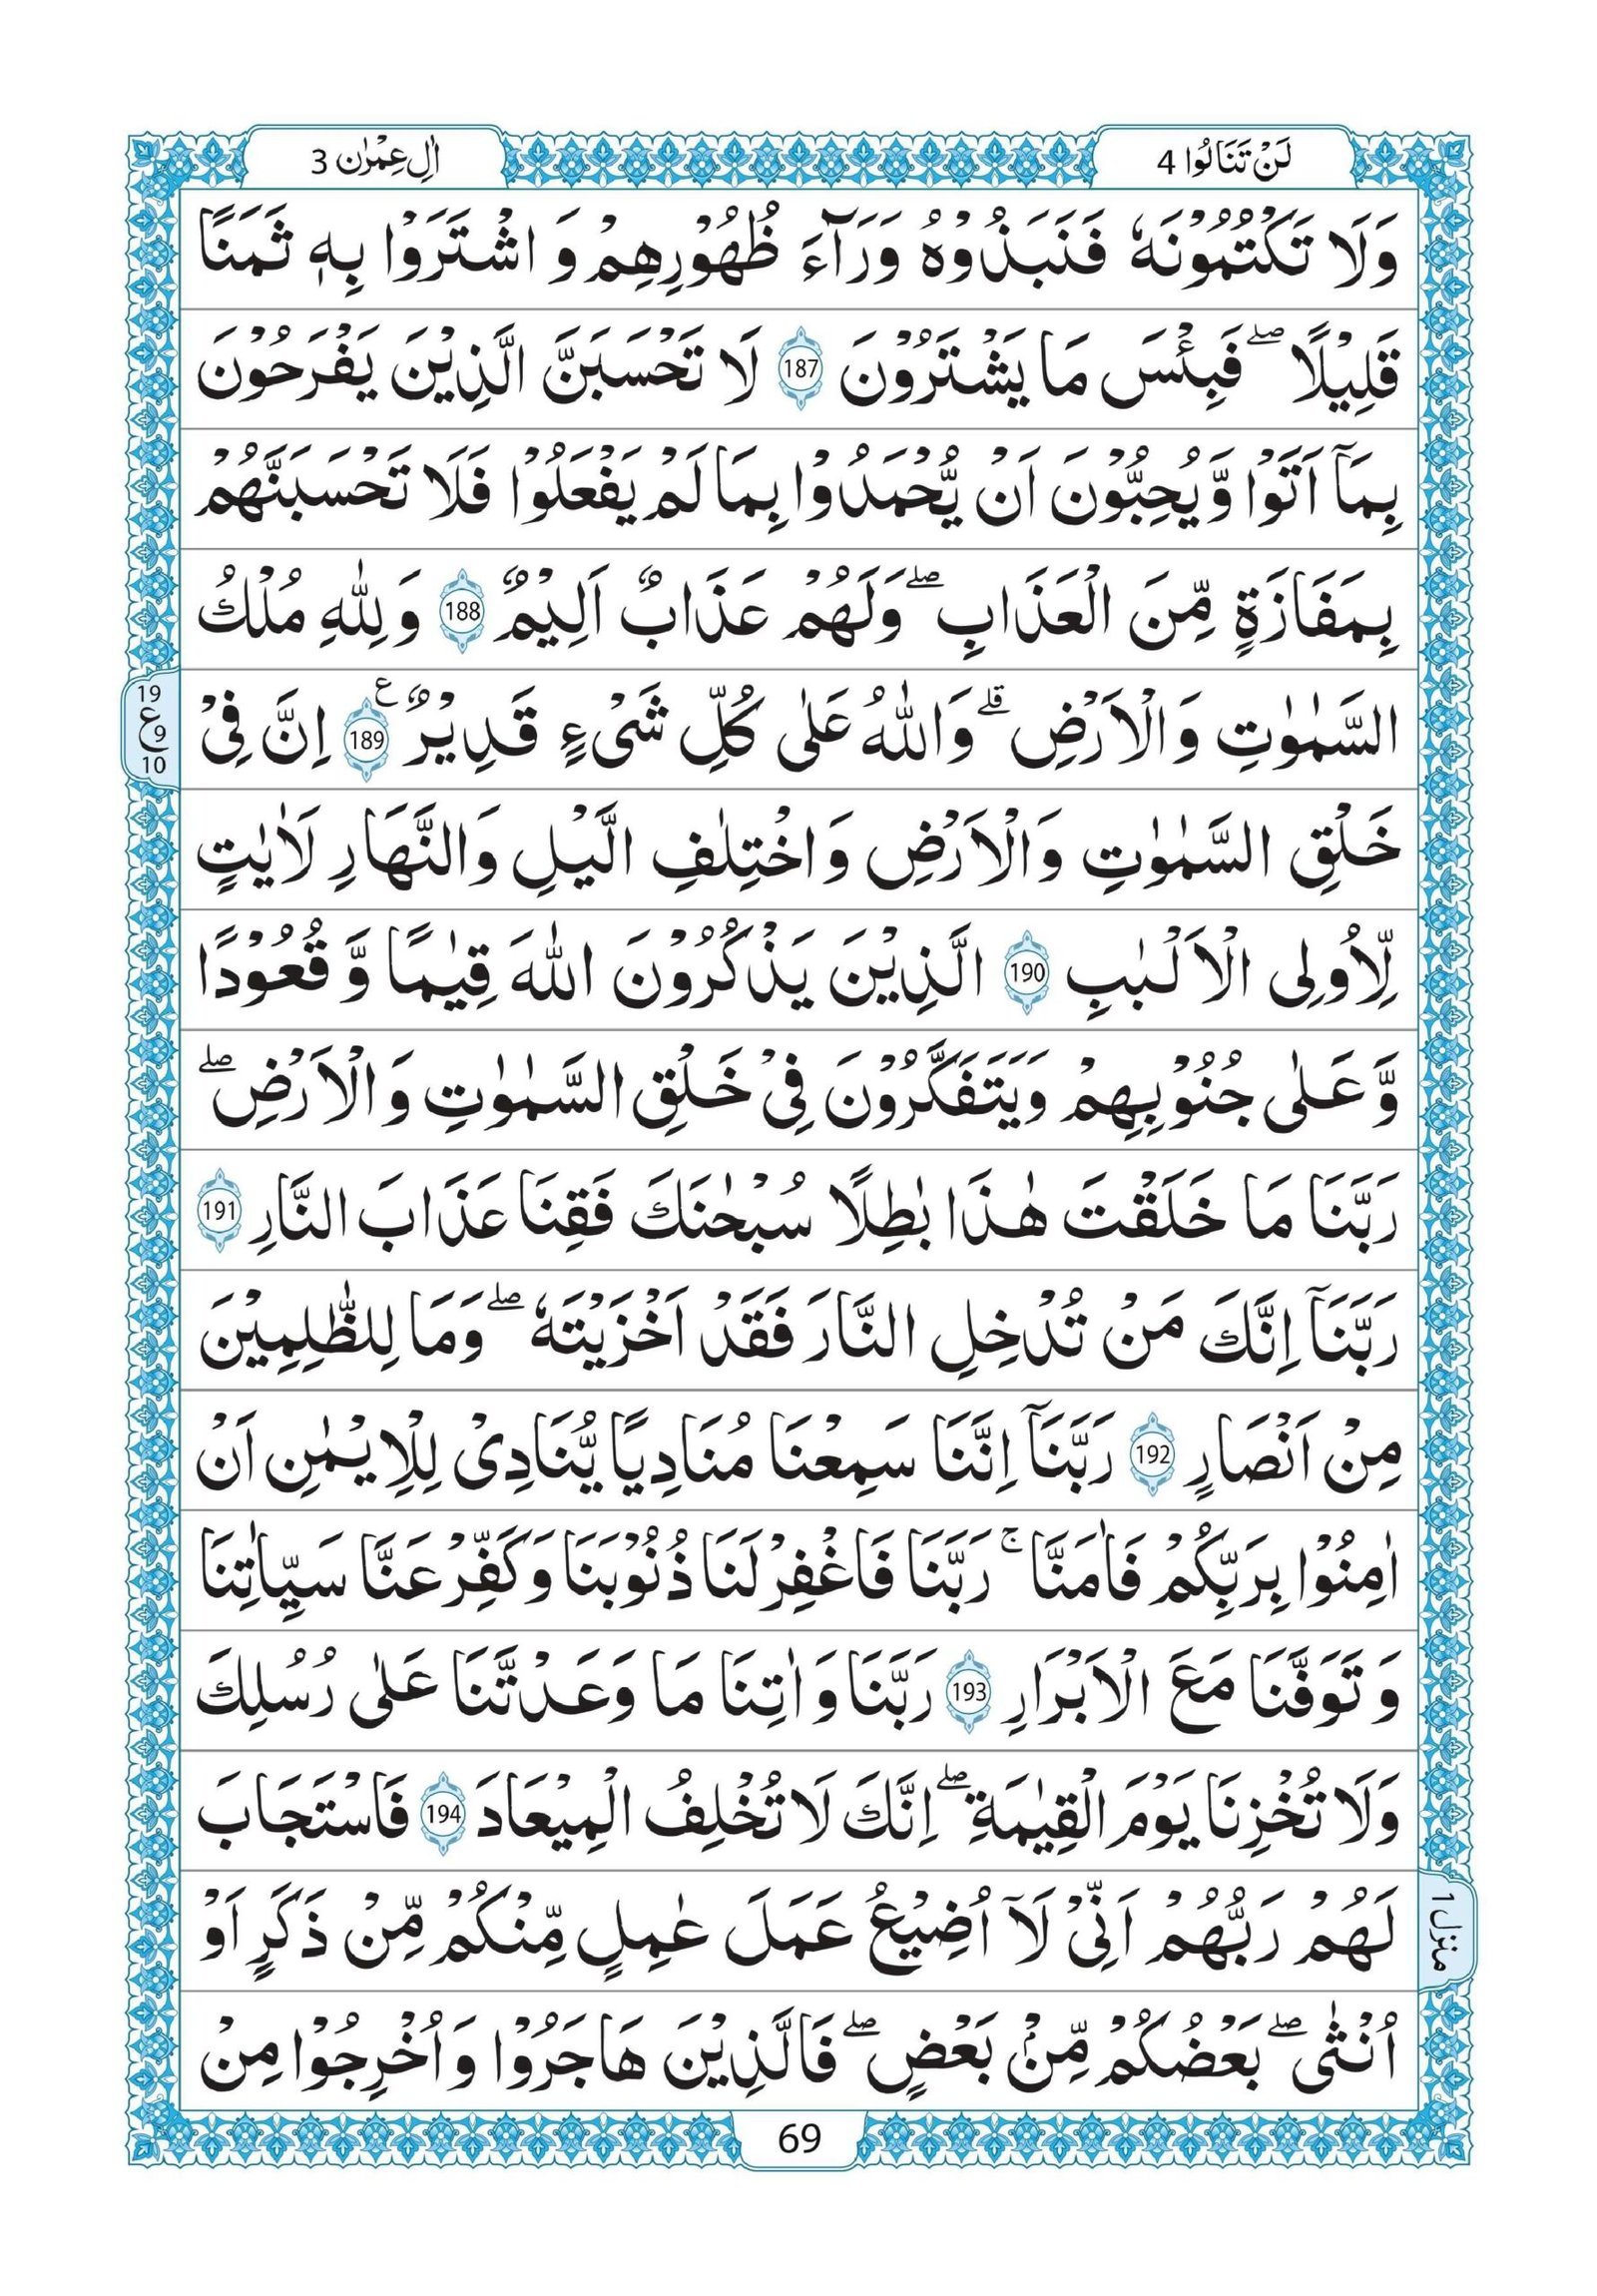 لَنْ تَنَالُوا 4
اٰلِ عِمْرٰن 3
وَلَا تَكْتُمُوْنَهٗ فَنَبَذُوْهُ وَرَآءَ ظُهُوْرِهِمْ وَ اشْتَرَوْا بِهٖ ثَمَنًا
قَلِيْلًا ۖ فَبِئْسَ مَا يَشْتَرُوْنَ 187 لَا تَحْسَبَنَّ الَّذِيْنَ يَفْرَحُوْنَ
بِمَآ اَتَوْا وَّيُحِبُّوْنَ اَنْ يُّحْمَدُوْا بِمَا لَمْ يَفْعَلُوْا فَلَا تَحْسَبَنَّهُمْ
بِمَفَازَةٍ مِّنَ الْعَذَابِ ۖ وَلَهُمْ عَذَابٌ اَلِيْمٌ 188 وَلِلّٰهِ مُلْكُ
السَّمٰوٰتِ وَالْاَرْضِ ۗ وَاللّٰهُ عَلٰى كُلِّ شَىْءٍ قَدِيْرٌ ع 189 اِنَّ فِىْ
19
ع 9
10
خَلْقِ السَّمٰوٰتِ وَالْاَرْضِ وَاخْتِلٰفِ الَّيْلِ وَالنَّهَارِ لَاٰيٰتٍ
لِّاُولِى الْاَلْبٰبِ 190 الَّذِيْنَ يَذْكُرُوْنَ اللّٰهَ قِيٰمًا وَّ قُعُوْدًا
وَّعَلٰى جُنُوْبِهِمْ وَيَتَفَكَّرُوْنَ فِىْ خَلْقِ السَّمٰوٰتِ وَالْاَرْضِ ۖ
رَبَّنَا مَا خَلَقْتَ هٰذَا بٰطِلًا سُبْحٰنَكَ فَقِنَا عَذَابَ النَّارِ 191
رَبَّنَآ اِنَّكَ مَنْ تُدْخِلِ النَّارَ فَقَدْ اَخْزَيْتَهٗ ۖ وَمَا لِلظّٰلِمِيْنَ
مِنْ اَنْصَارٍ 192 رَبَّنَآ اِنَّنَا سَمِعْنَا مُنَادِيًا يُّنَادِىْ لِلْاِيْمٰنِ اَنْ
اٰمِنُوْا بِرَبِّكُمْ فَاٰمَنَّا ۚ رَبَّنَا فَاغْفِرْ لَنَا ذُنُوْبَنَا وَكَفِّرْ عَنَّا سَيِّاٰتِنَا
وَ تَوَفَّنَا مَعَ الْاَبْرَارِ 193 رَبَّنَا وَاٰتِنَا مَا وَعَدْتَّنَا عَلٰى رُسُلِكَ
وَلَا تُخْزِنَا يَوْمَ الْقِيٰمَةِ ۖ اِنَّكَ لَا تُخْلِفُ الْمِيْعَادَ 194 فَاسْتَجَابَ
لَهُمْ رَبُّهُمْ اَنِّىْ لَآ اُضِيْعُ عَمَلَ عٰمِلٍ مِّنْكُمْ مِّنْ ذَكَرٍ اَوْ
منزل 1
اُنْثٰى ۖ بَعْضُكُمْ مِّنْۢ بَعْضٍ ۖ فَالَّذِيْنَ هَاجَرُوْا وَاُخْرِجُوْا مِنْ
69